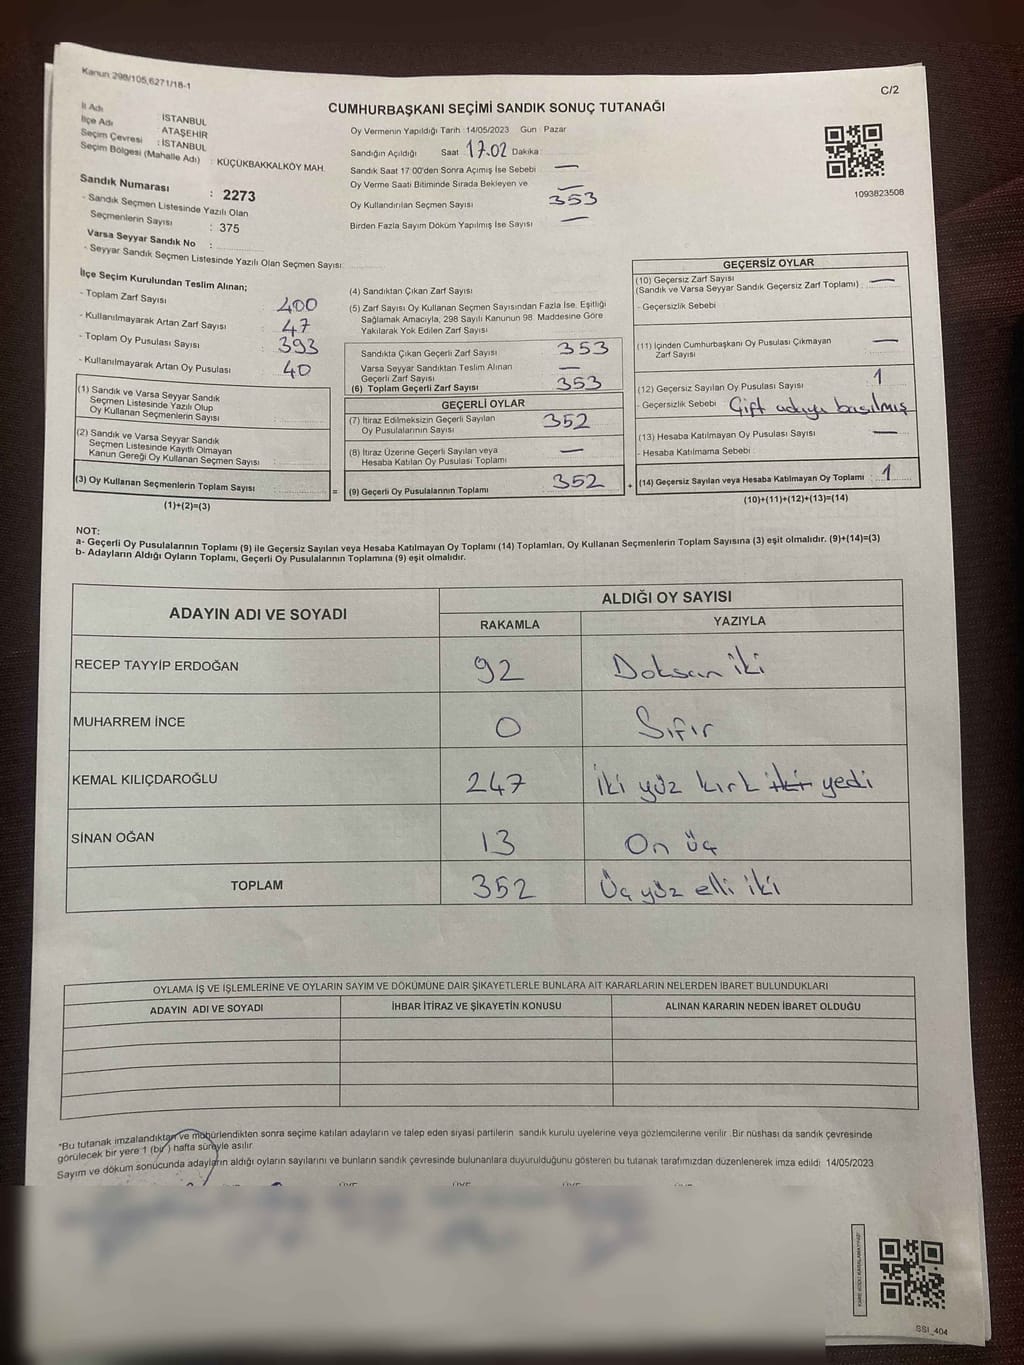 Kanun 298/105,6271/18-1
C/2
CUMHURBAŞKANI SEÇİMİ SANDIK SONUÇ TUTANAĞI
İl Adı : İSTANBUL
İlçe Adı : ATAŞEHİR
Seçim Çevresi : İSTANBUL
Seçim Bölgesi (Mahalle Adı) : KÜÇÜKBAKKALKÖY MAH.
Sandık Numarası : 2273
- Sandık Seçmen Listesinde Yazılı Olan
Seçmenlerin Sayısı : 375
Varsa Seyyar Sandık No :
- Seyyar Sandık Seçmen Listesinde Yazılı Olan Seçmen Sayısı:
Oy Vermenin Yapıldığı Tarih : 14/05/2023 Gün : Pazar
Sandığın Açıldığı Saat 17.02 Dakika :
Sandık Saat 17:00'den Sonra Açımış İse Sebebi —
Oy Verme Saati Bitiminde Sırada Bekleyen ve —
Oy Kullandırılan Seçmen Sayısı 353
Birden Fazla Sayım Döküm Yapılmış İse Sayısı —
1093823508
İlçe Seçim Kurulundan Teslim Alınan;
- Toplam Zarf Sayısı : 400
- Kullanılmayarak Artan Zarf Sayısı : 47
- Toplam Oy Pusulası Sayısı : 393
- Kullanılmayarak Artan Oy Pusulası : 40
(1) Sandık ve Varsa Seyyar Sandık
Seçmen Listesinde Yazılı Olup
Oy Kullanan Seçmenlerin Sayısı :
(2) Sandık ve Varsa Seyyar Sandık
Seçmen Listesinde Kayıtlı Olmayan
Kanun Gereği Oy Kullanan Seçmen Sayısı :
(3) Oy Kullanan Seçmenlerin Toplam Sayısı :
(1)+(2)=(3)
=
(4) Sandıktan Çıkan Zarf Sayısı
(5) Zarf Sayısı Oy Kullanan Seçmen Sayısından Fazla İse, Eşitliği
Sağlamak Amacıyla, 298 Sayılı Kanunun 98. Maddesine Göre
Yakılarak Yok Edilen Zarf Sayısı
Sandıkta Çıkan Geçerli Zarf Sayısı 353
Varsa Seyyar Sandıktan Teslim Alınan
Geçerli Zarf Sayısı —
(6) Toplam Geçerli Zarf Sayısı 353
GEÇERLİ OYLAR
(7) İtiraz Edilmeksizin Geçerli Sayılan
Oy Pusulalarının Sayısı 352
(8) İtiraz Üzerine Geçerli Sayılan veya
Hesaba Katılan Oy Pusulası Toplamı —
(9) Geçerli Oy Pusulalarının Toplamı 352
+
GEÇERSİZ OYLAR
(10) Geçersiz Zarf Sayısı
(Sandık ve Varsa Seyyar Sandık Geçersiz Zarf Toplamı) : —
- Geçersizlik Sebebi :
(11) İçinden Cumhurbaşkanı Oy Pusulası Çıkmayan
Zarf Sayısı —
(12) Geçersiz Sayılan Oy Pusulası Sayısı 1
- Geçersizlik Sebebi : Çift adaya basılmış
(13) Hesaba Katılmayan Oy Pusulası Sayısı —
- Hesaba Katılmama Sebebi :
(14) Geçersiz Sayılan veya Hesaba Katılmayan Oy Toplamı : 1
(10)+(11)+(12)+(13)=(14)
NOT:
a- Geçerli Oy Pusulalarının Toplamı (9) ile Geçersiz Sayılan veya Hesaba Katılmayan Oy Toplamı (14) Toplamları, Oy Kullanan Seçmenlerin Toplam Sayısına (3) eşit olmalıdır. (9)+(14)=(3)
b- Adayların Aldığı Oyların Toplamı, Geçerli Oy Pusulalarının Toplamına (9) eşit olmalıdır.
ADAYIN ADI VE SOYADI
ALDIĞI OY SAYISI
RAKAMLA YAZIYLA
RECEP TAYYİP ERDOĞAN 92 Doksan iki
MUHARREM İNCE 0 Sıfır
KEMAL KILIÇDAROĞLU 247 İki yüz kırk iki yedi
SİNAN OĞAN 13 On üç
TOPLAM 352 Üç yüz elli iki
OYLAMA İŞ VE İŞLEMLERİNE VE OYLARIN SAYIM VE DÖKÜMÜNE DAİR ŞİKAYETLERLE BUNLARA AİT KARARLARIN NELERDEN İBARET BULUNDUKLARI
ADAYIN ADI VE SOYADI İHBAR İTİRAZ VE ŞİKAYETİN KONUSU ALINAN KARARIN NEDEN İBARET OLDUĞU
*Bu tutanak imzalandıktan ve mühürlendikten sonra seçime katılan adayların ve talep eden siyasi partilerin sandık kurulu üyelerine veya gözlemcilerine verilir. Bir nüshası da sandık çevresinde
görülecek bir yere 1 (bir) hafta süreyle asılır.
Sayım ve döküm sonucunda adayların aldığı oyların sayılarını ve bunların sandık çevresinde bulunanlara duyurulduğunu gösteren bu tutanak tarafımızdan düzenlenerek imza edildi. 14/05/2023
KARE KODU KARALAMAYINIZ!
SSI_404